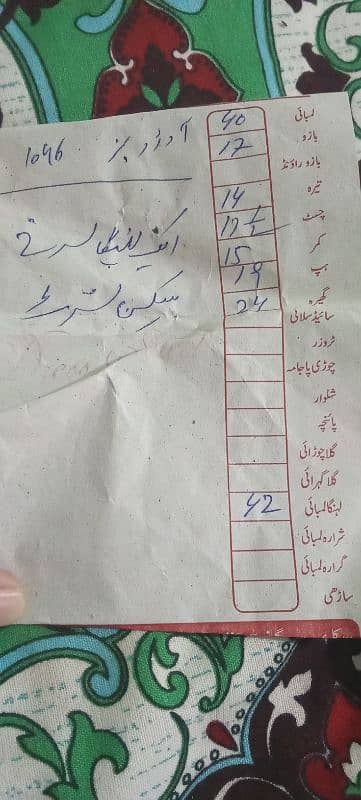 آرڈر نمبر 1046
لمبائی 40
بازو 17
بازو راؤنڈ
تیرہ 14
چسٹ 17 1/2
کمر 15
ہپ 19
گھیرہ 24
سائیڈ سلائی
ٹروزر
چوڑی پاجامہ
شلوار
پائنچے
گلا چوڑائی
گلا گہرائی
لہنگا لمبائی 42
شرارہ لمبائی
گرارہ لمبائی
ساڑھی
ایک لہنگا سرخ